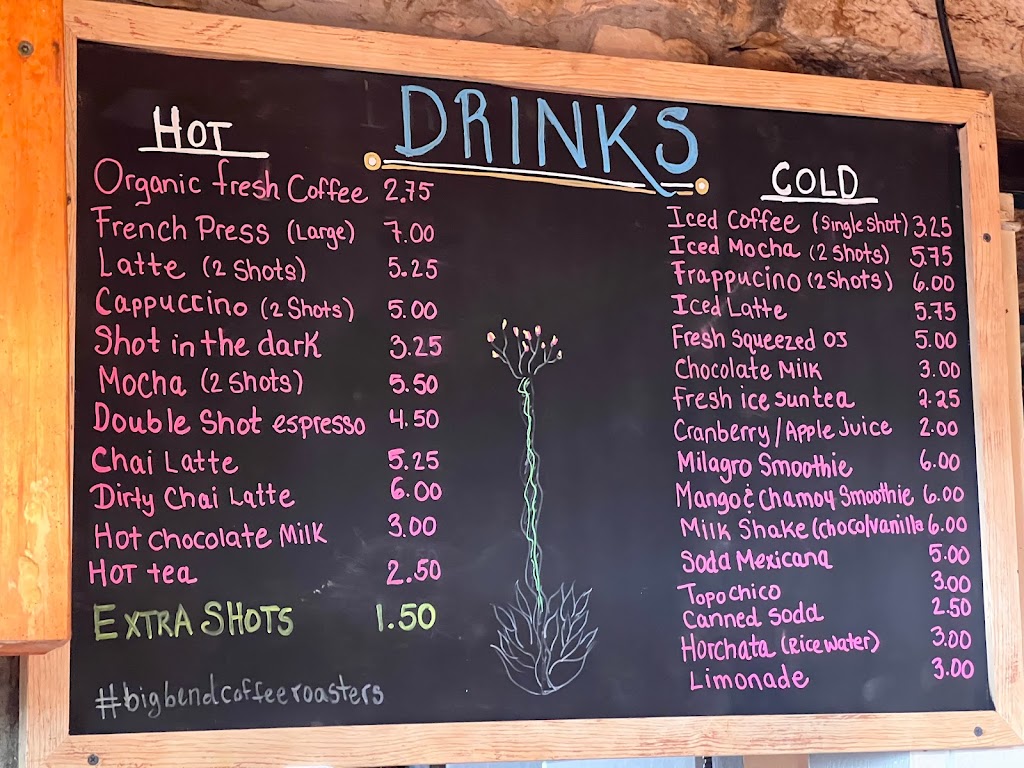 DRINKS
HOT
Organic fresh Coffee 2.75
French Press (Large) 7.00
Latte (2 Shots) 5.25
Cappuccino (2 Shots) 5.00
Shot in the dark 3.25
Mocha (2 Shots) 5.50
Double Shot espresso 4.50
Chai Latte 5.25
Dirty Chai Latte 6.00
Hot chocolate Milk 3.00
HOT tea 2.50
EXTRA SHOTS 1.50
#bigbendcoffeeroasters
COLD
Iced Coffee (Single Shot) 3.25
Iced Mocha (2 Shots) 5.75
Frappucino (2 Shots) 6.00
Iced Latte 5.75
Fresh Squeezed OJ 5.00
Chocolate Milk 3.00
Fresh ice sun tea 2.25
Cranberry/Apple Juice 2.00
Milagro Smoothie 6.00
Mango & Chamoy Smoothie 6.00
Milk Shake (choco/vanilla 6.00
Soda Mexicana 5.00
Topo chico 3.00
Canned Soda 2.50
Horchata (Rice water) 3.00
Limonade 3.00